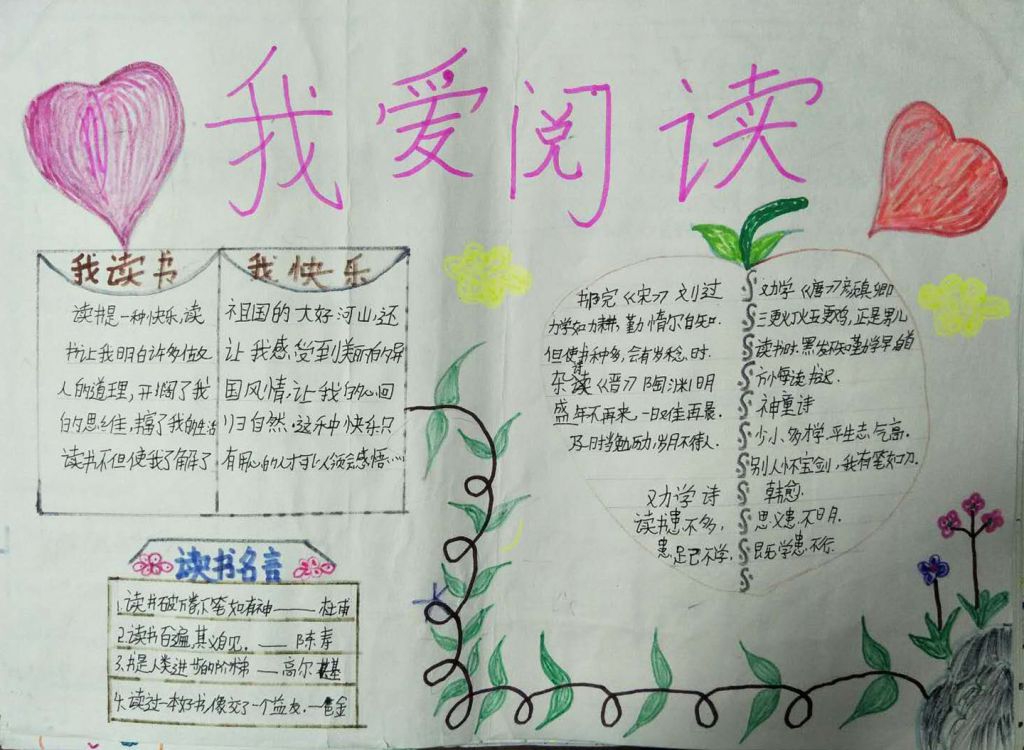 我爱阅读
我读书
我快乐
读书是一种快乐,读
书让我明白许多做
人的道理,开阔了我
的思维,丰富了我的生活
读书不但使我了解了
祖国的大好河山,还
让我感受到美丽的异
国风情,让我的心回
归自然.这乐中快乐只
有用心的人才可以领会感悟
读书名言
1.读书破万卷下笔如有神——杜甫
2.读书百遍,其义自见.——陈寿
3.书是人类进步的阶梯—高尔基
4.读过一本好书,像交了一个益友.—
《宋》刘过
力学如力耕,勤惰尔自知.
但使书种多,会有岁稔时.
杂诗《晋》陶渊明
盛年不再来,一日难再晨.
及时当勉励,岁月不待人.
劝学诗
读书患不多,
患足已不学,
劝学《唐》颜真卿
三更灯火五更鸡,正是男儿
读书时.黑发不知勤学早,白首
方悔读书迟.
神童诗
少小多才学,平生志气高.
别人怀宝剑,我有笔如刀.
韩愈.
思义患不明.
既学患不行.